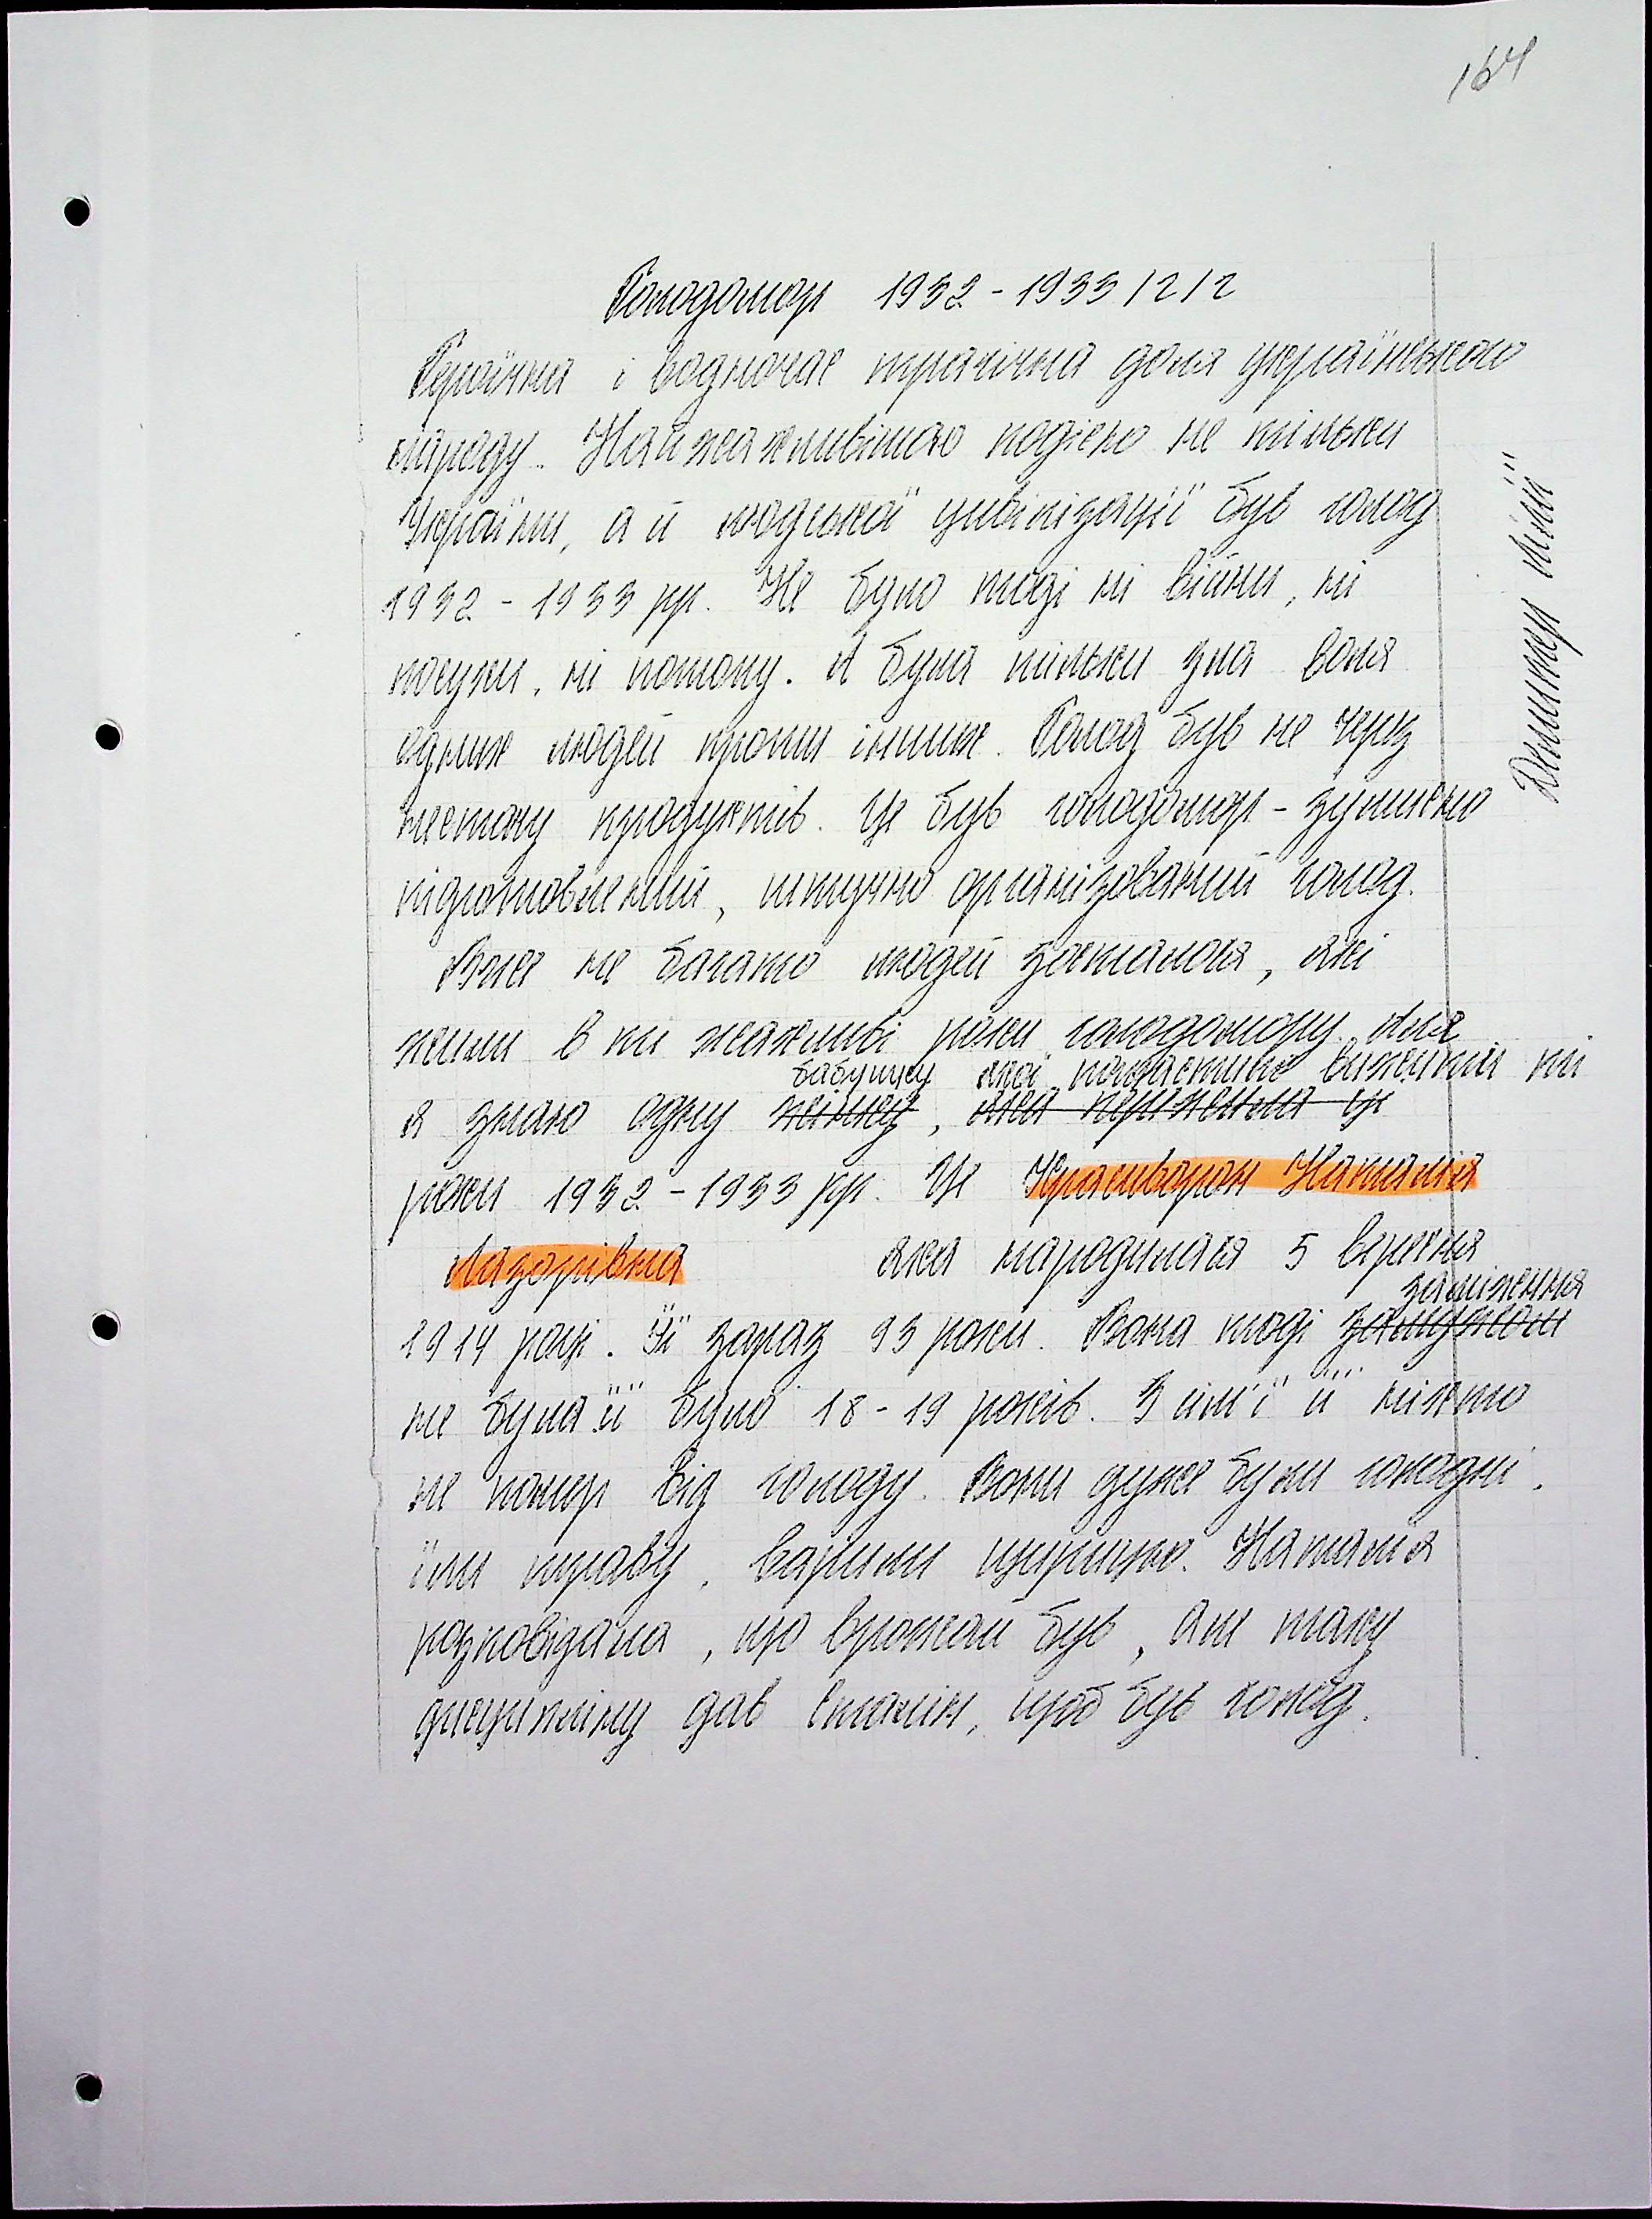 164
Голодомор 1932-1933 / 2 / 2
Героїчна і водночас трагічна доля українського
народу. Найжахливішою подією не тільки
України, а й людської цивілізації був голод
1932-1933 рр. Не було тоді ні війни, ні
посухи, ні потопу. А була тільки зла воля
одних людей проти інших. Голод був не через
нестачу продуктів. Це був голодомор - зумисно
підготовлений, штучно організований голод.
Вже не багато людей зосталося, які
жили в ті жахливі роки голодомору. Але
бабушку якої пощастило вижити ті
я знаю одну жінку, яка пережила ці
роки 1932-1933 рр. Це
Назарівна яка народилася 5 вересня
заміжня
1914 році. Їй зараз 93 роки. Вона тоді замужем
не була її було 18-19 років. З сім'ї її ніхто
не помер від голоду. Вони дуже були голодні,
їли траву, варили Наталія
розповідала, що врожай був, але таку
дисципліну дав Сталін, щоб був голод.